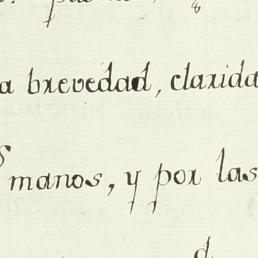 a brevedad, clarida
manos, y por las